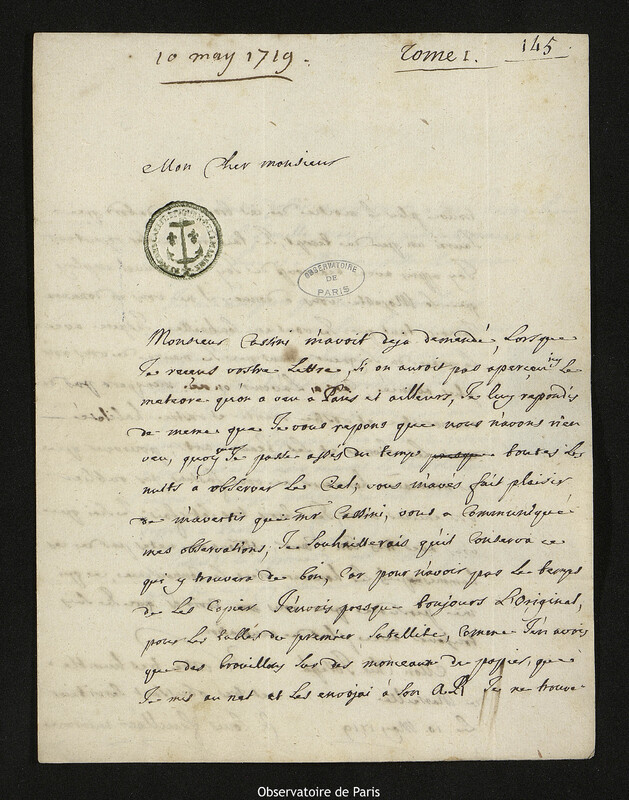 10 may 1719.
Tome 1. 145
Mon Cher monsieur
OBSERVATOIRE
DE
PARIS
Monsieur Cassini m'avoit deja demandé, Lorsque
Je receus vostre Lettre, si on auroit pas aperceu icy Le
meteore qu'on a veu a Paris et ailleurs, Je luy repondis
de meme que Je vous repons que nous n'avons rien
veu, quoy que Je passe assés du temps presque toutes Les
nuits à observer Le Ciel; vous m'avés fait plaisir
de m'avertir que mr Cassini, vous a communiqué
mes observations, Je souhaitterais qu'il conserva ce
qu'il y trouvera de bon, Car pour n'avoir pas Le temps
de Les Copier J'envois presque toujours L'Original,
pour Les tables du premier satellite, comme J'en avois
que des brouillons sur des monceaux de papier, que
Je mis au net et Les envojai à Son A.R. Je ne trouve
Observatoire de Paris